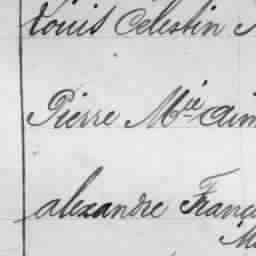 Louis Celestin
Pierre Mie Aim
Alexandre Franç